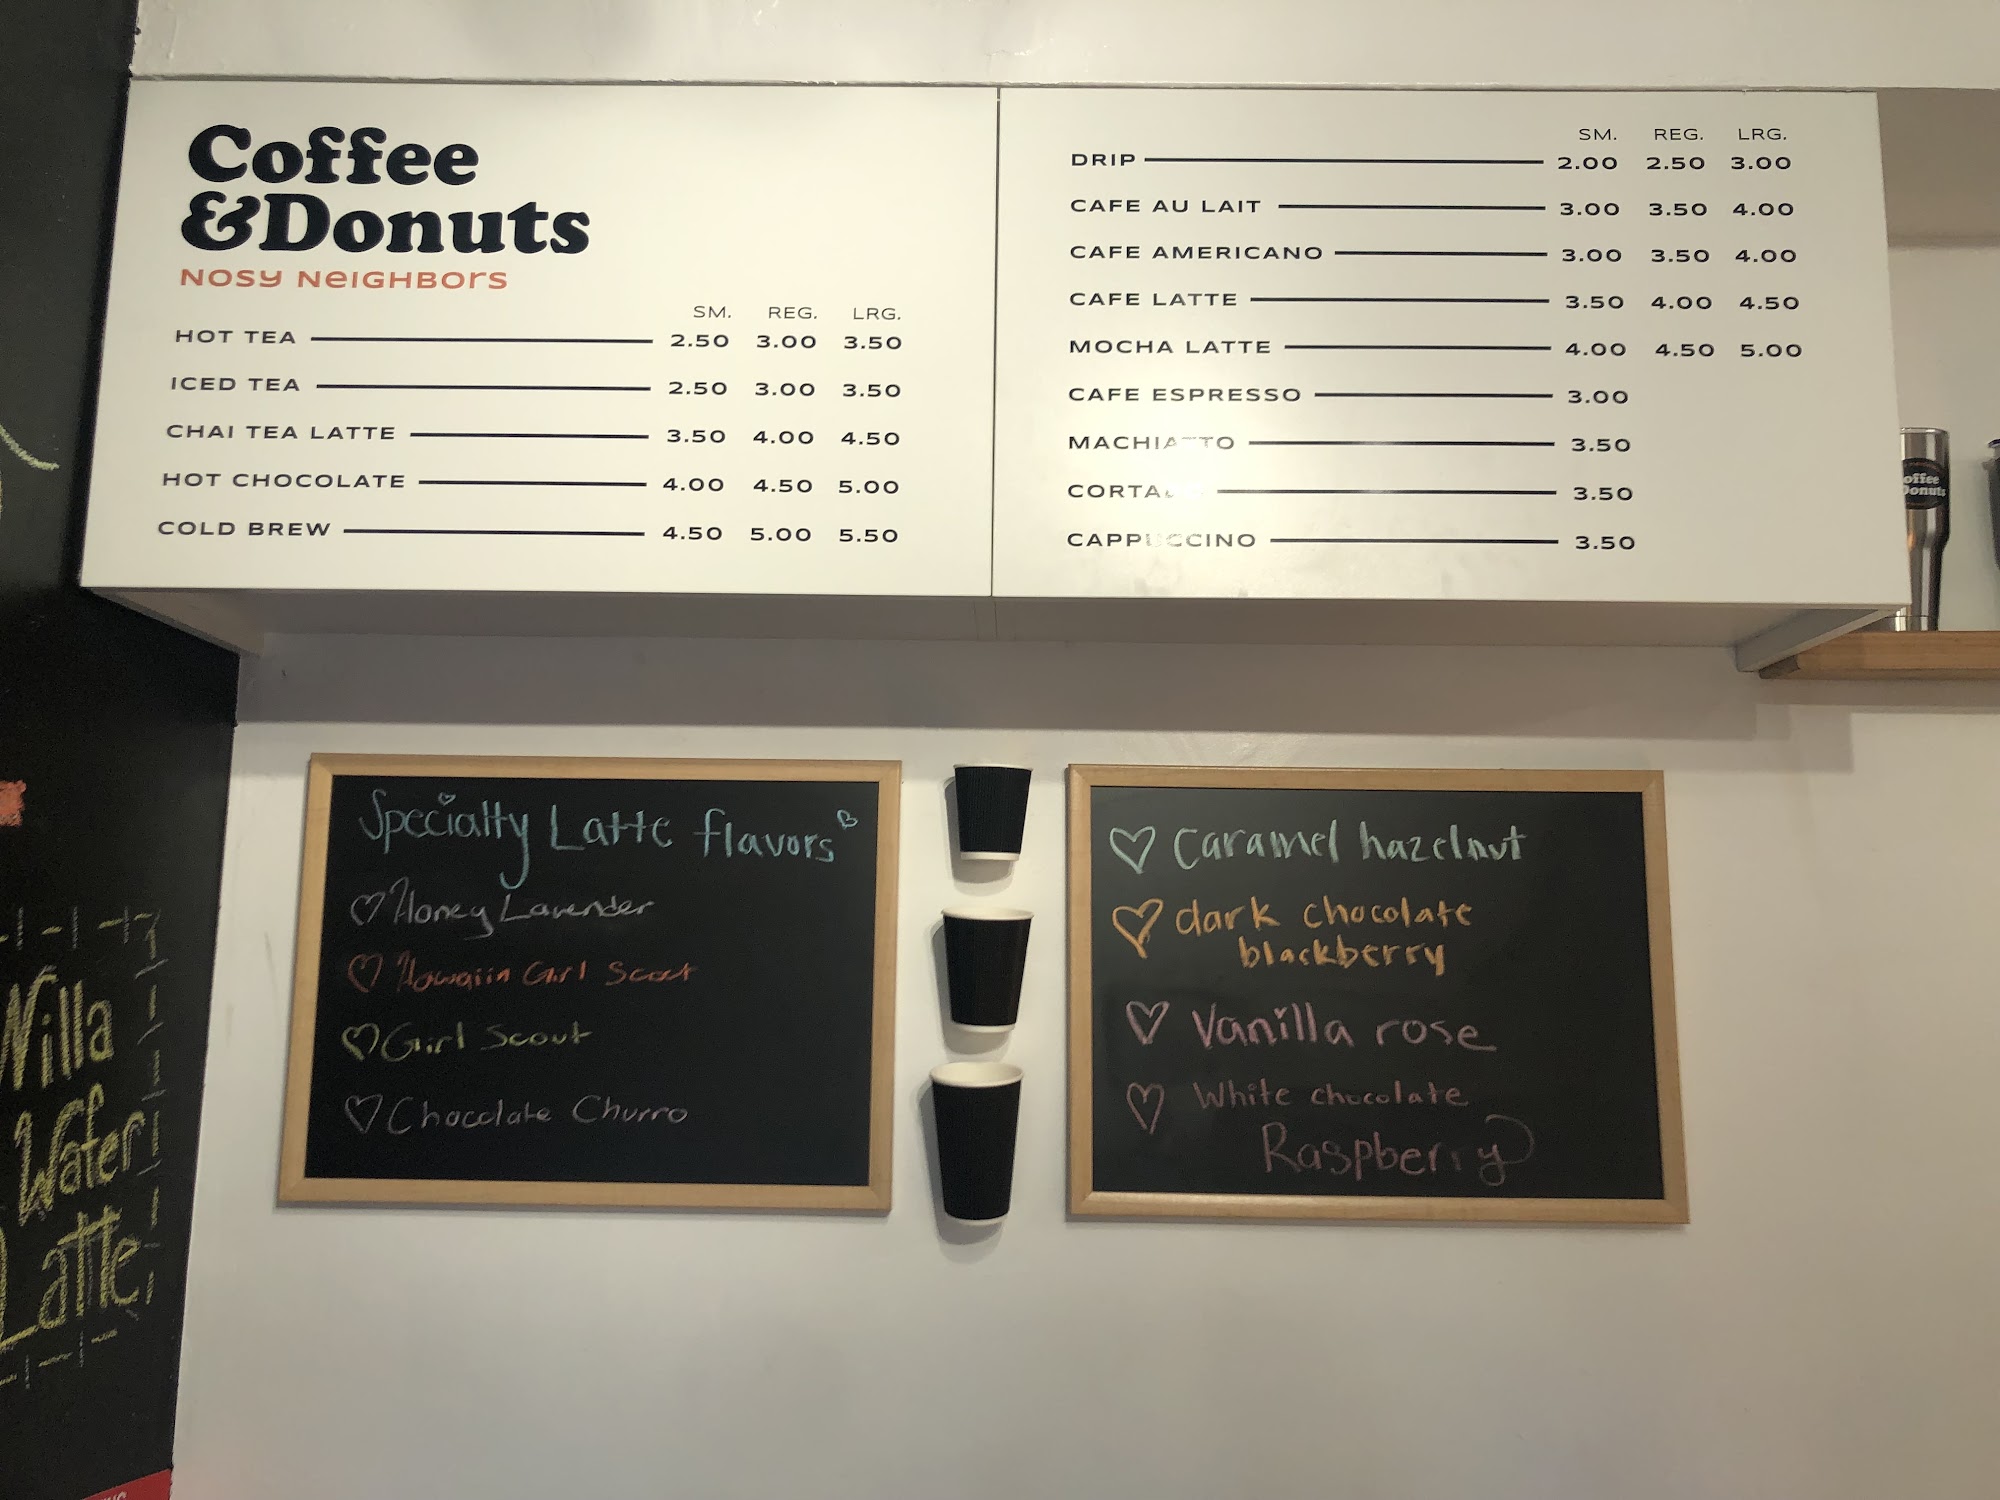 Coffee
&Donuts
NOSY NeIGHBOrS
SM. REG. LRG.
HOT TEA 2.50 3.00 3.50
ICED TEA 2.50 3.00 3.50
CHAI TEA LATTE 3.50 4.00 4.50
HOT CHOCOLATE 4.00 4.50 5.00
COLD BREW 4.50 5.00 5.50
SM. REG. LRG.
DRIP 2.00 2.50 3.00
CAFE AU LAIT 3.00 3.50 4.00
CAFE AMERICANO 3.00 3.50 4.00
CAFE LATTE 3.50 4.00 4.50
MOCHA LATTE 4.00 4.50 5.00
CAFE ESPRESSO 3.00
MACHIATTO 3.50
3.50
CAPPUCCINO 3.50
Coffee
Donuts
Specialty Latte flavors
Honey Lavender
Hawaiin Girl Scout
Girl Scout
Chocolate Churro
Caramel hazelnut
dark chocolate
blackberry
Vanilla rose
White chocolate
Raspberry
Nilla
Wafer
Latte